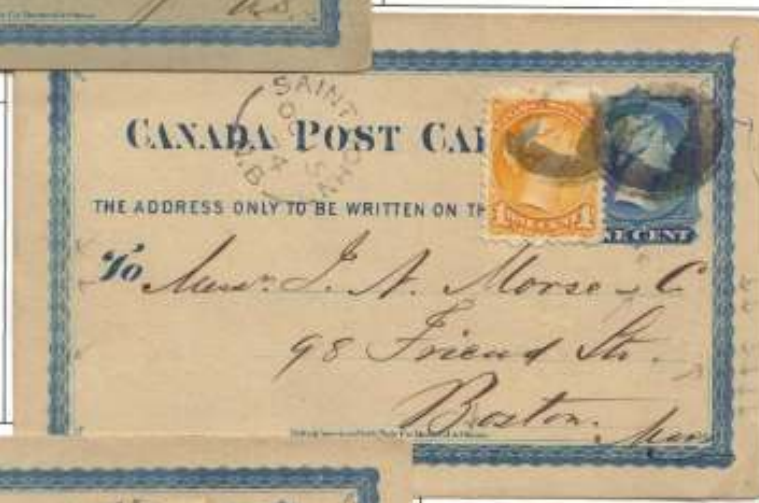 SAINT JOHN
N.B.
CANADA POST CA
THE ADDRESS ONLY TO BE WRITTEN ON TH
NE CENT
To Messrs. J. A. Morse & C
98 Friend Str.
Boston. Mass